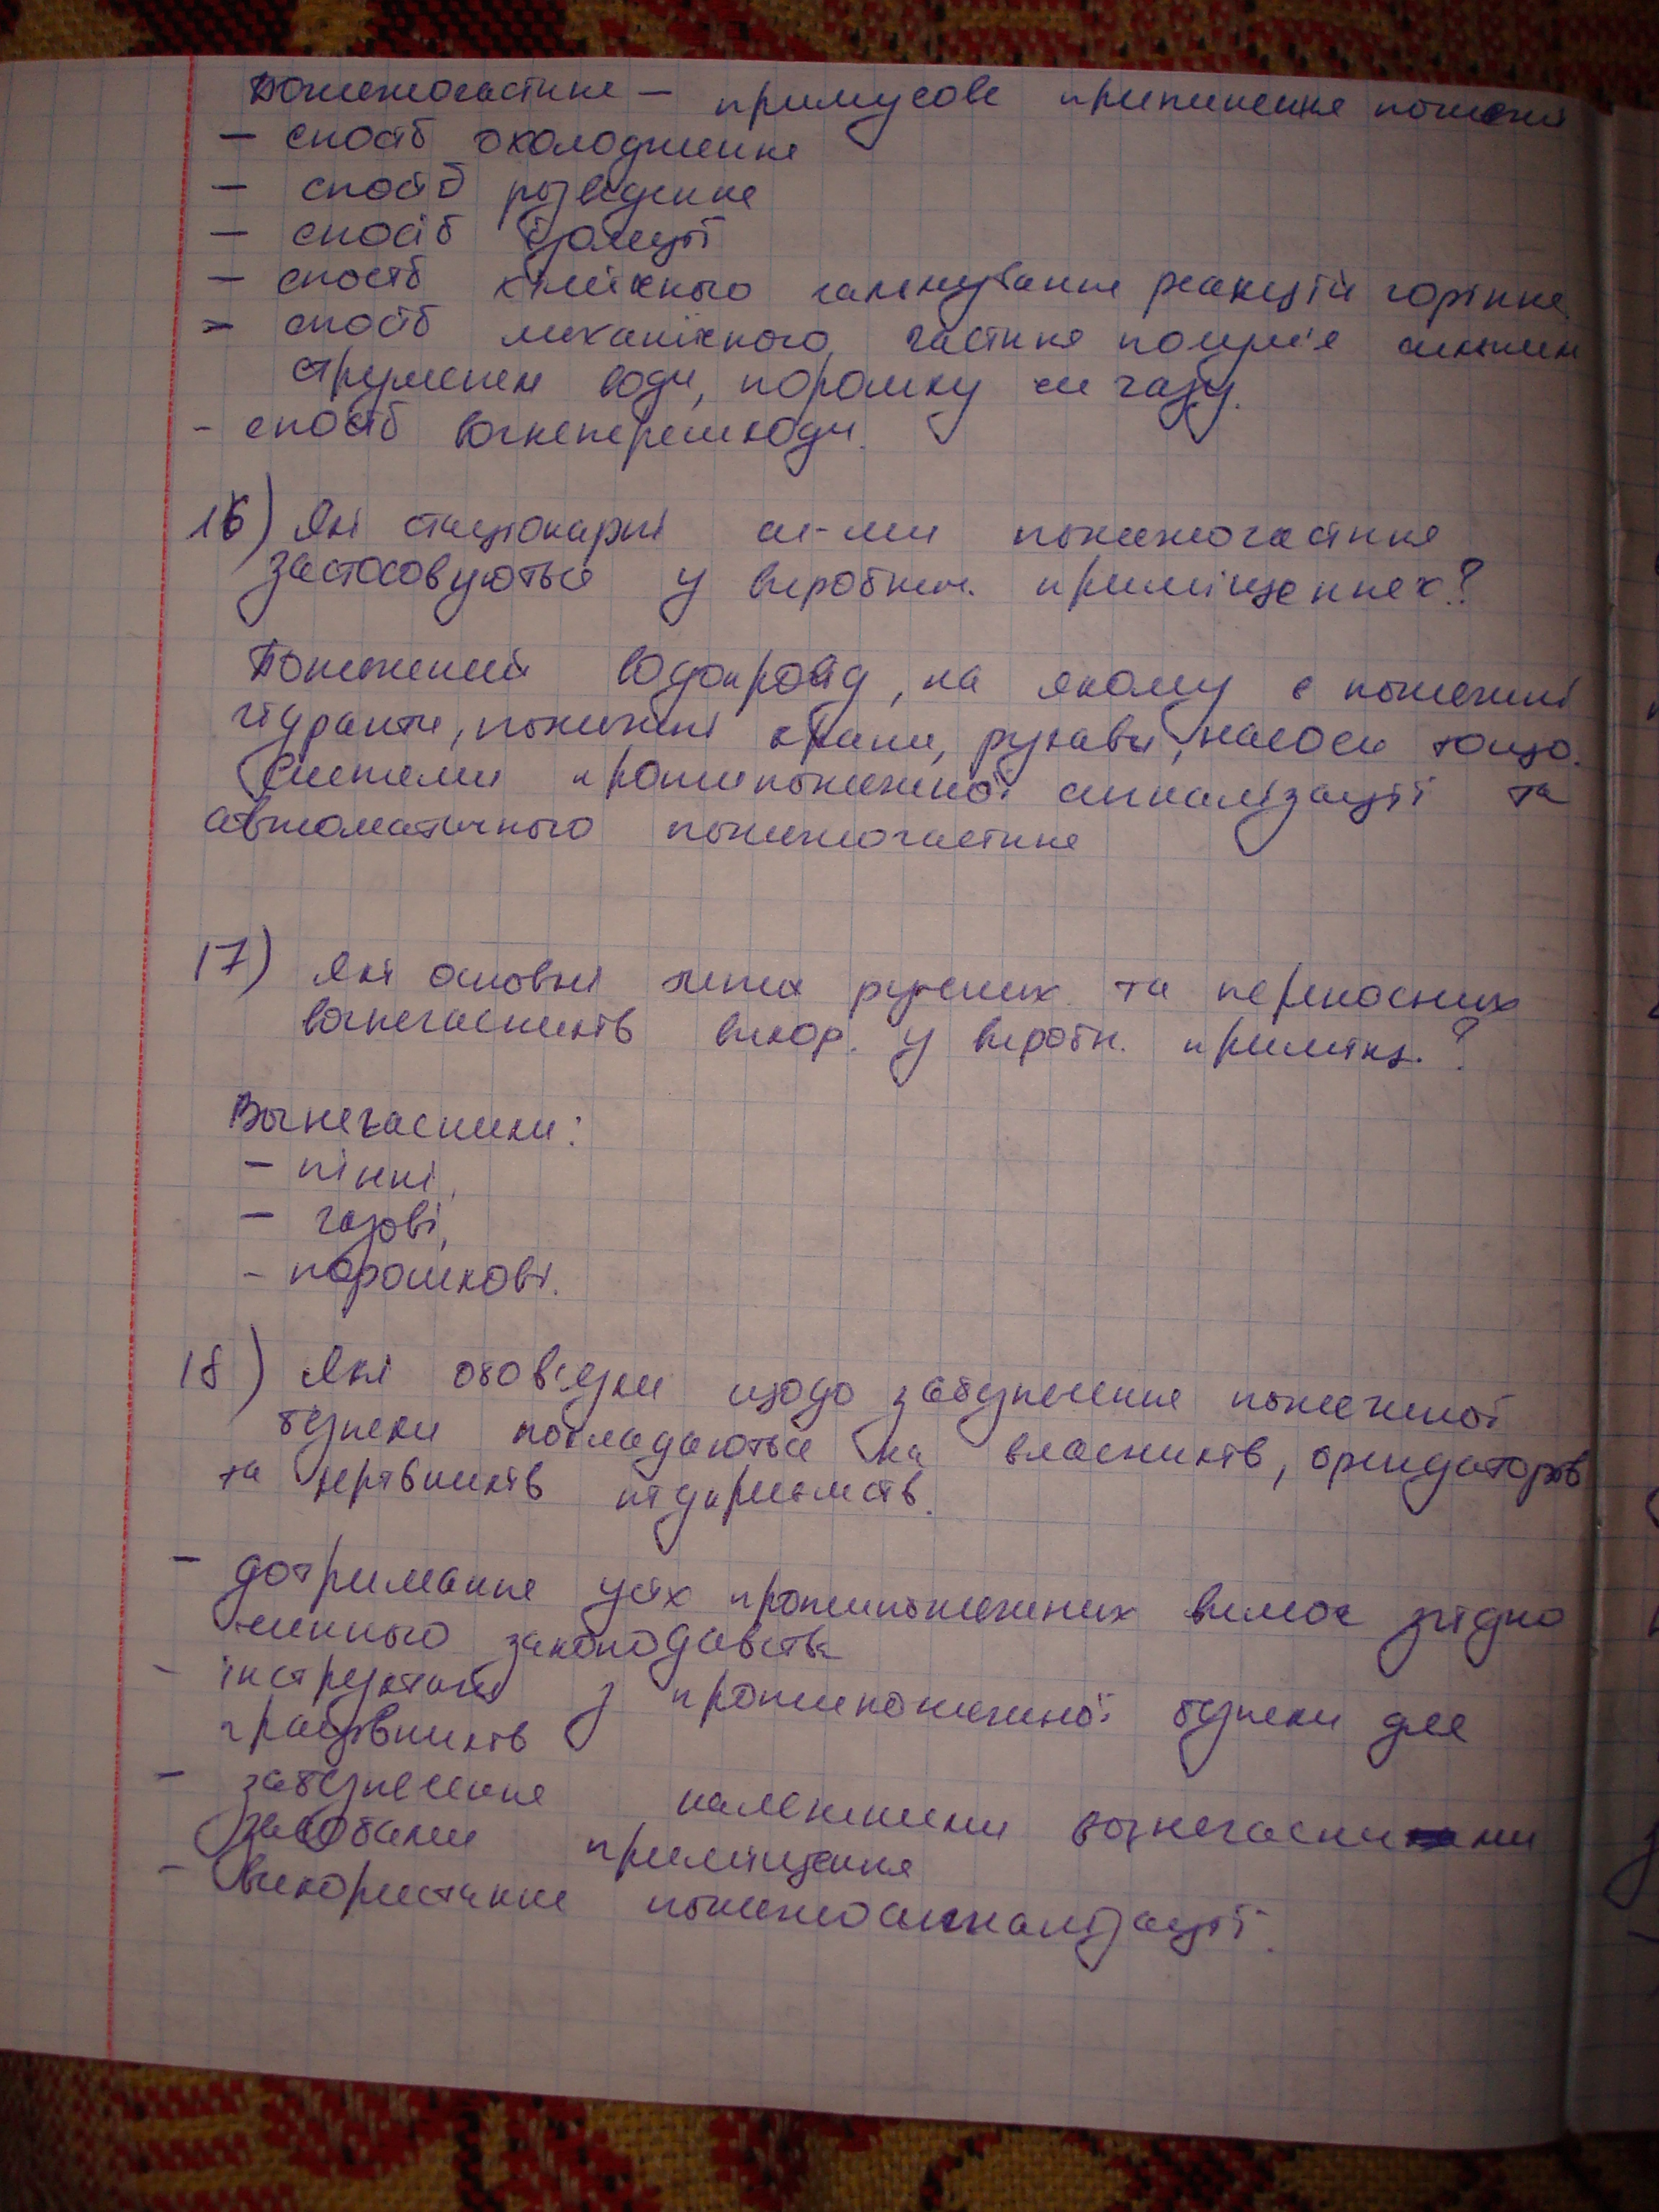 Пожежогасіння — примусове припинення пожежі
— спосіб охолодження
— спосіб розведення
— спосіб ізоляції
— спосіб хімічного гальмування реакцій горіння
— спосіб механічного гасіння полум'я сильним
струменем води, порошку чи газу.
- спосіб вогнеперешкоди.
16) Які стаціонарні си-ми пожежогасіння
застосовуються у виробнич. приміщеннях?
Пожежний водопровід, на якому є пожежні
гідранти, пожежні крани, рукави, насоси тощо.
Системи протипожежної сигналізації та
автоматичного пожежогасіння
17) Які основні типи ручних та переносних
вогнегасників викор. у виробн. приміщ.?
Вогнегасники:
— пінні,
— газові,
- порошкові.
18) Які обов'язки щодо забезпечення пожежної
безпеки покладаються на власників, орендаторів
та керівників підприємств.
— дотримання усіх протипожежних вимог згідно
чинного законодавства
- інструктажі з протипожежної безпеки для
працівників
- забезпечення належними вогнегасними
засобами приміщення
- використання пожежосигналізації.